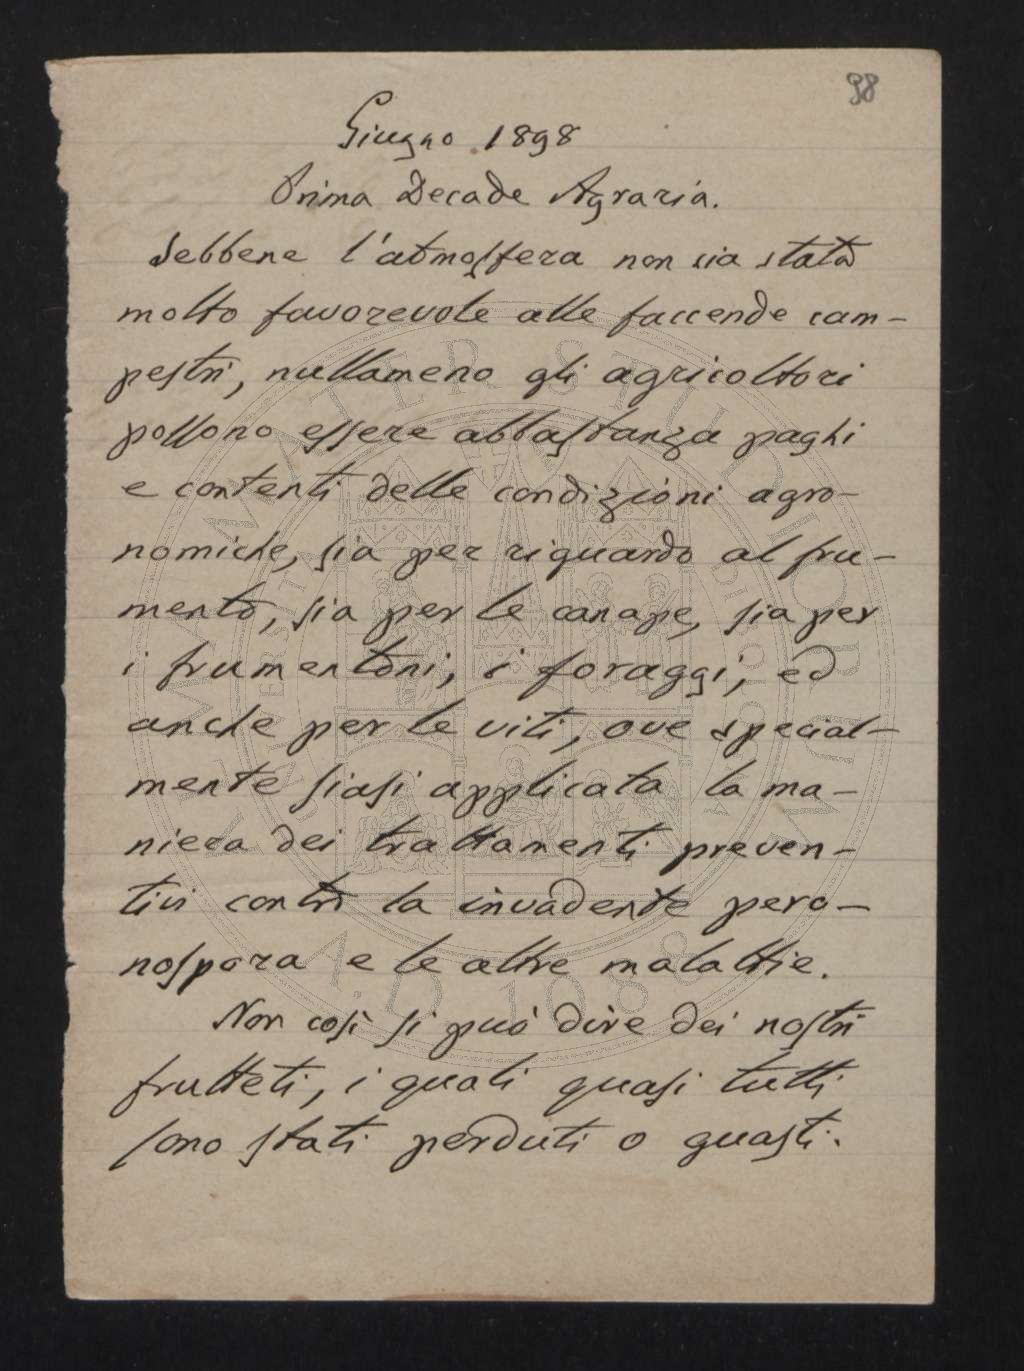 98
Giugno 1898
Prima Decade Agraria.
Sebbene l'atmosfera non sia stata
molto favorevole alle faccende cam-
pestri, nullameno gli agricoltori
possono essere abbastanza paghi
e contenti delle condizioni agro-
nomiche, sia per riguardo al fru-
mento, sia per le canape, sia per
i frumentoni, i foraggi, ed
anche per le viti, ove special-
mente siasi applicata la ma-
niera dei trattamenti preven-
tivi contro la invadente pero-
nospora e le altre malattie.
Non così si può dire dei nostri
frutteti, i quali quasi tutti
sono stati perduti o guasti.
ALMA MATER STUDIORUM
A.D. 1088